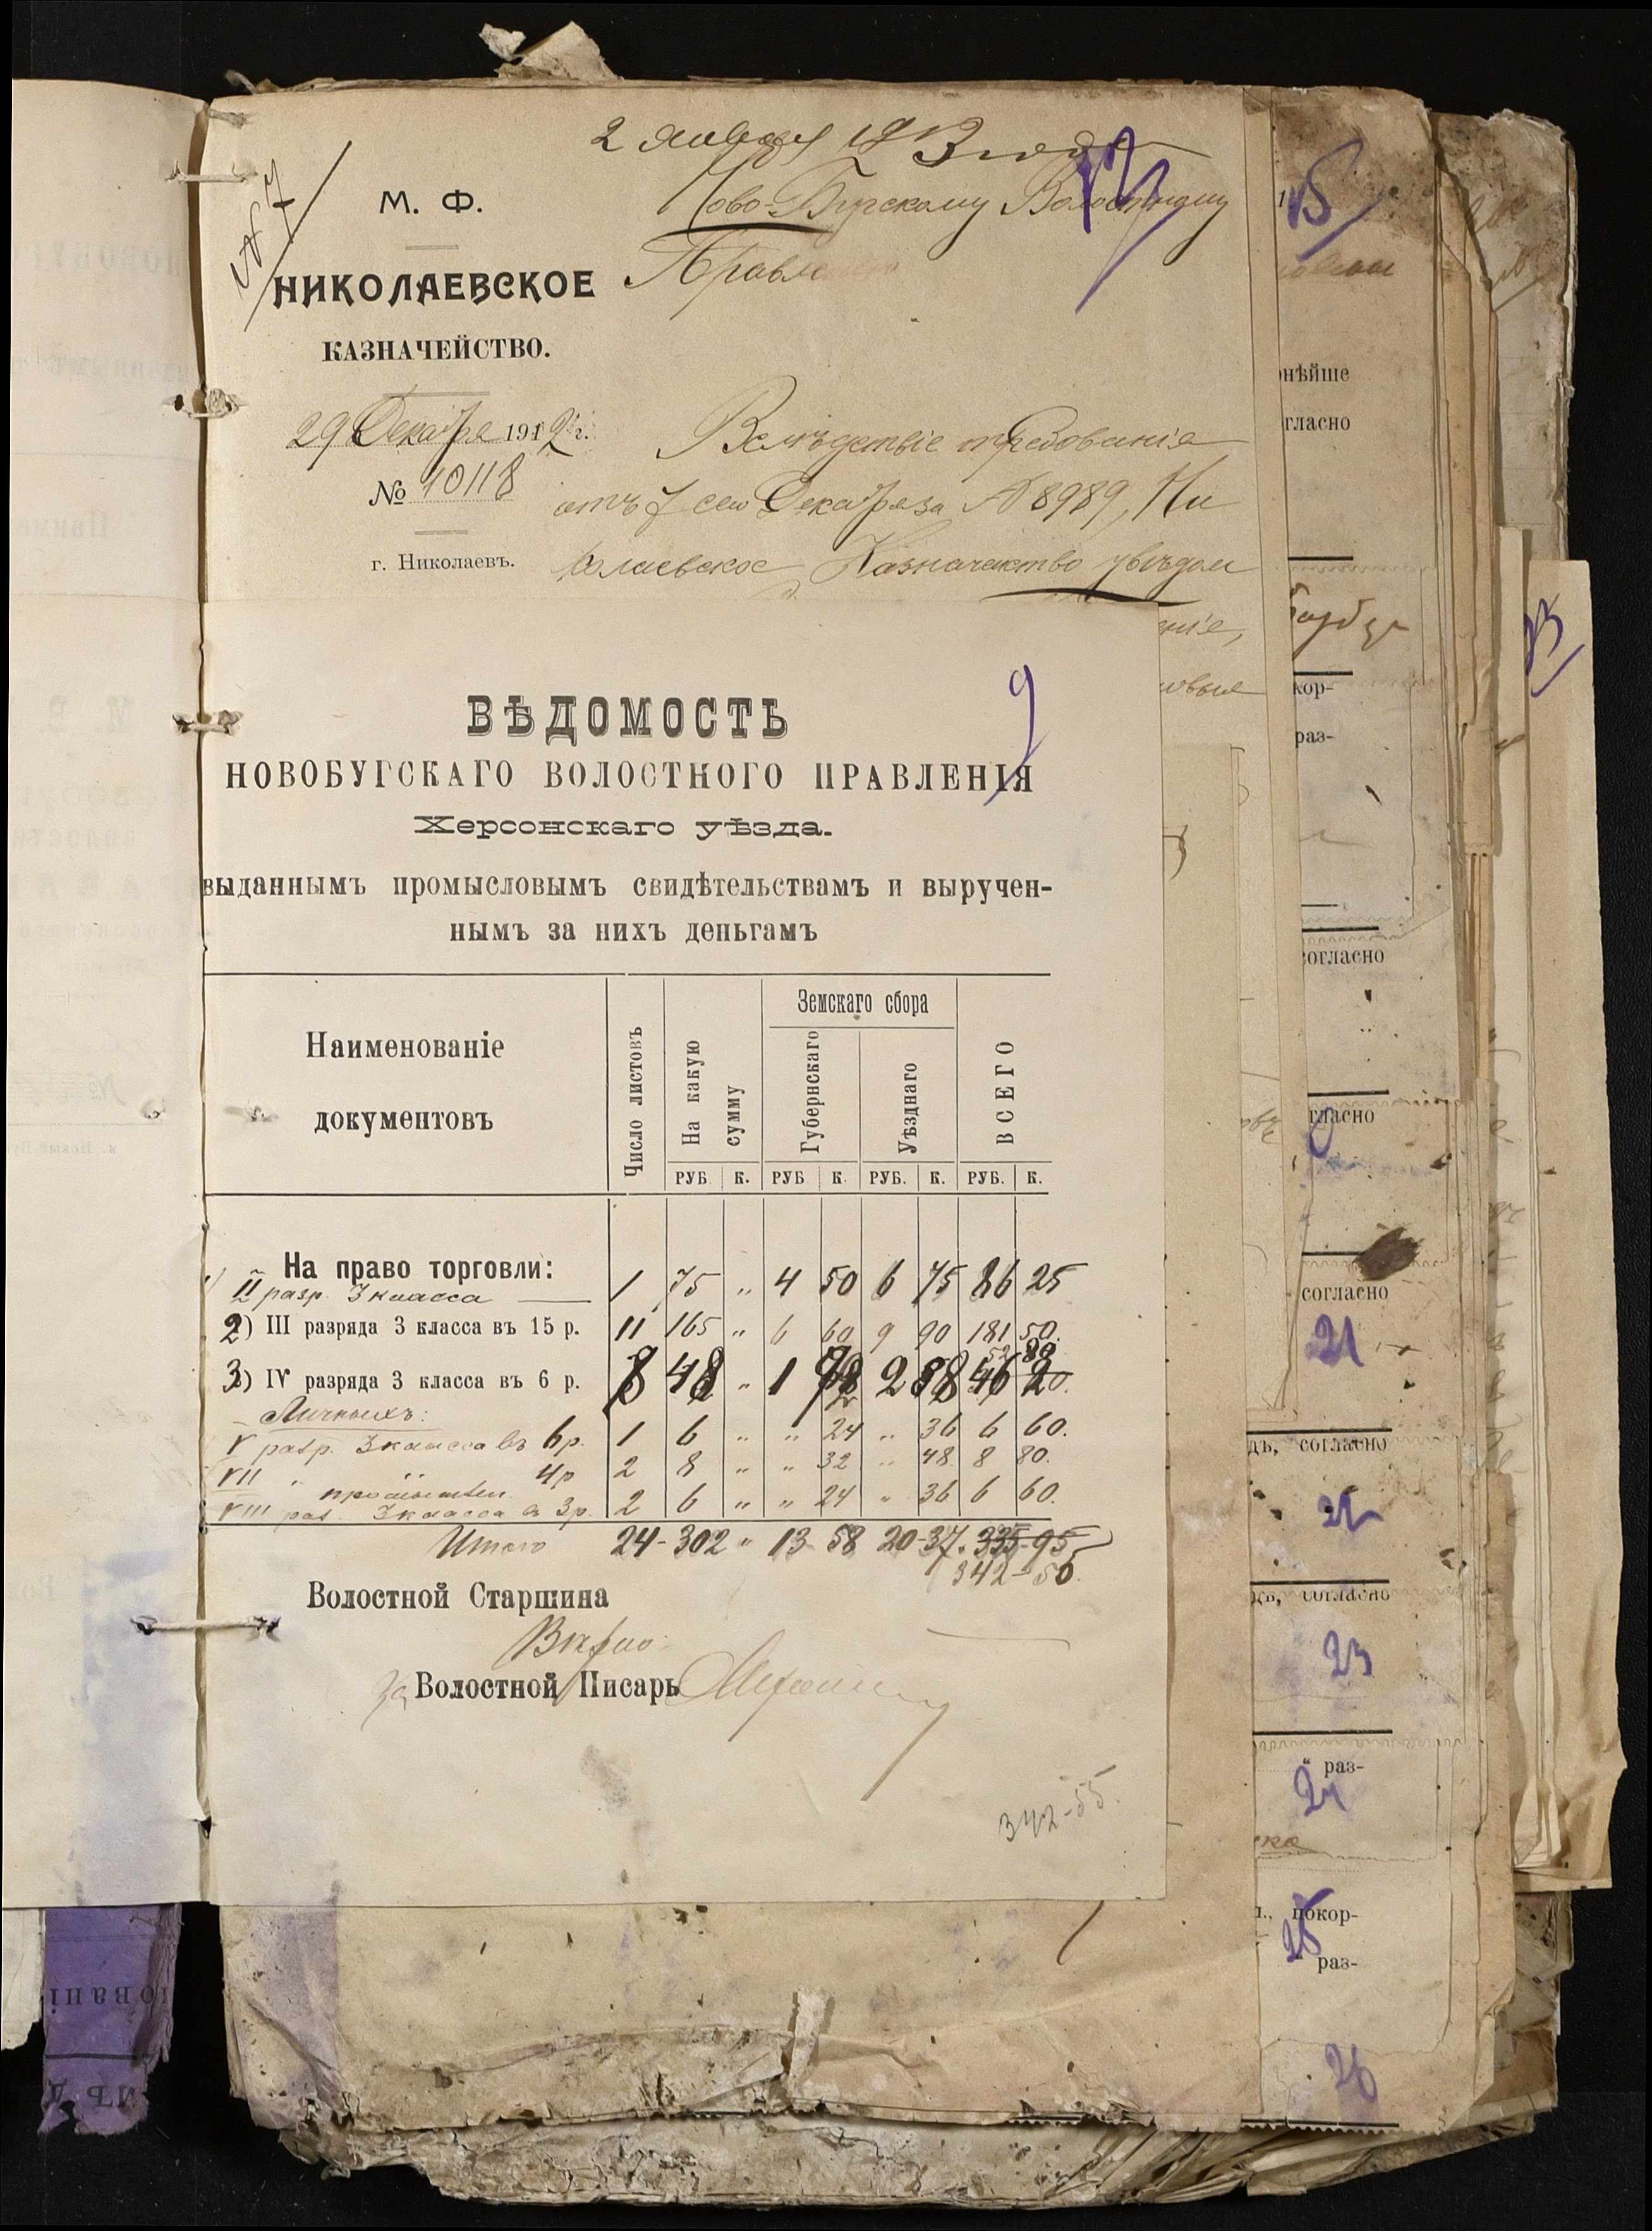 2 января 1913 года
12
№ 7
М. Ф.
Ново-Бугскому Волостному
Правле
НИКОЛАЕВСКОЕ
КАЗНАЧЕЙСТВО.
29 Декабря 1912 г.
№ 10118
г. Николаевъ.
Вслѣдствіе требованія
отъ 7 сего Декабря за № 8989, Ни
колаевское Казначейство увѣдом
9
ВѢДОМОСТЬ
НОВОБУГСКАГО ВОЛОСТНОГО ПРАВЛЕНІЯ
Херсонскаго уѣзда.
выданнымъ промысловымъ свидѣтельствамъ и выручен-
нымъ за нихъ деньгамъ
Наименованіе документовъ
Число листовъ
На какую сумму
Земскаго сбора
Губернскаго
Уѣзднаго
ВСЕГО
РУБ. К. РУБ К. РУБ. К. РУБ. К.
На право торговли:
1) II разр. 3 класса 1 75 „ 4 50 6 75 86 25
2) III разряда 3 класса въ 15 р. 11 165 „ 6 60 9 90 181 50.
52 80
3) IV разряда 3 класса въ 6 р. 8 48 „ 1 92 2 88 46 20.
Личныхъ:
V разр. 3 класса въ 6 р. 1 6 „ „ 24 „ 36 6 60.
VII „ „ 4 р 2 8 „ „ 32 „ 48 8 80.
VIII раз. 3 класса в 3 р. 2 6 „ „ 24 „ 36 6 60.
Итого 24 - 302 „ 13 58 20-37. 335-95
342-55.
Волостной Старшина
Вѣрно:
За Волостной Писарь
342-55.
15
нѣйше
гласно
кор-
раз-
согласно
гласно
согласно
21
дъ, согласно
22
дъ, согласно
23
" раз-
24
покор-
25
раз-
26